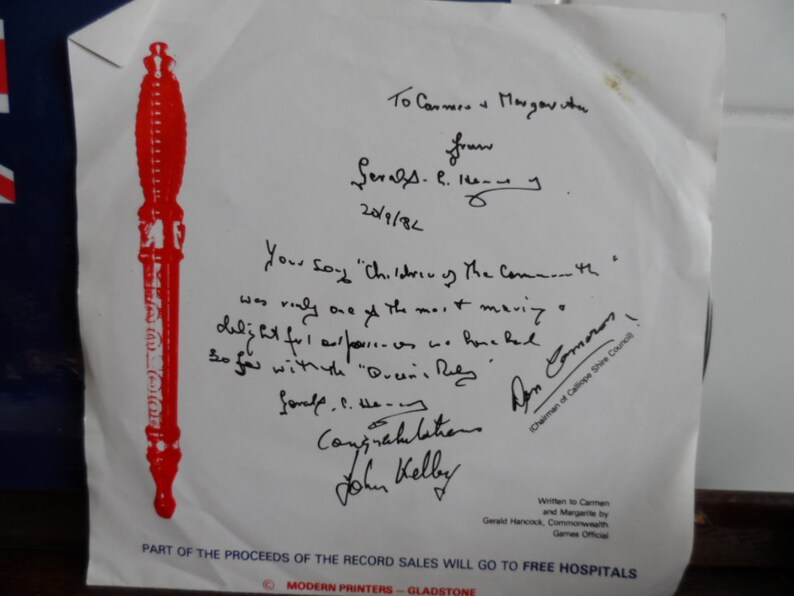 To Carmen & Margarita
from
Gerald. C. H
20/9/82
Your song "Children of The Common th"
was really one of the most moving &
delightful experiences we have had
so far with the "Queen's Relay"
Gerald. C. H
Congratulations
John Kelly
Don Cameron
(Chairman of Calliope Shire Council)
Written to Carmen
and Margarite by
Gerald Hancock, Commonwealth
Games Official
PART OF THE PROCEEDS OF THE RECORD SALES WILL GO TO FREE HOSPITALS
© MODERN PRINTERS – GLADSTONE